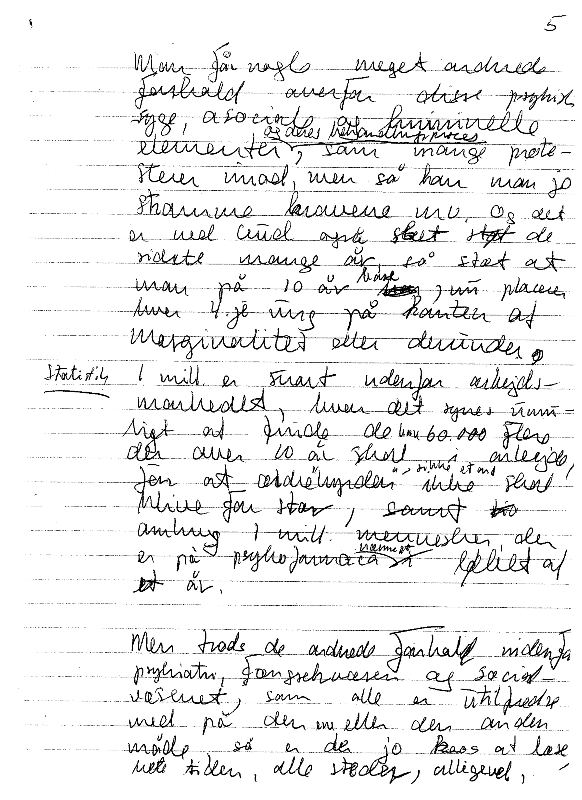 5
Man får nogle meget ændrede
forhold overfor disse psykisk
syge, asociale og kriminelle
og deres behandlingsproces
elementer, som mange prote-
sterer imod, men så kan man jo
stramme kravene nu. Og det
er ved Gud også sket de
sidste mange år, så stæt at
man på 10 år, nu placerer
hver 4.je ung på kanten af
Marginalitet eller derunder.
Statistik
1 mill er snart udenfor arbejds-
markedet, hvor det synes umu-
ligt at finde de 60.000 flere
der over 10 år skal i arbejde,
for at ældrebyrden ikke skal
blive for stor, samt
omkring 1 mill mennesker der
er på psykofarmaca nærmest i løbet af
et år.
Men trods de ændrede forhold indenfor
psykiatri, fængselsvæsen og social-
væsenet, som alle er utilfredse
med på den ene eller den anden
måde, så er der jo at læse
hele tiden, alle steder, alligevel,